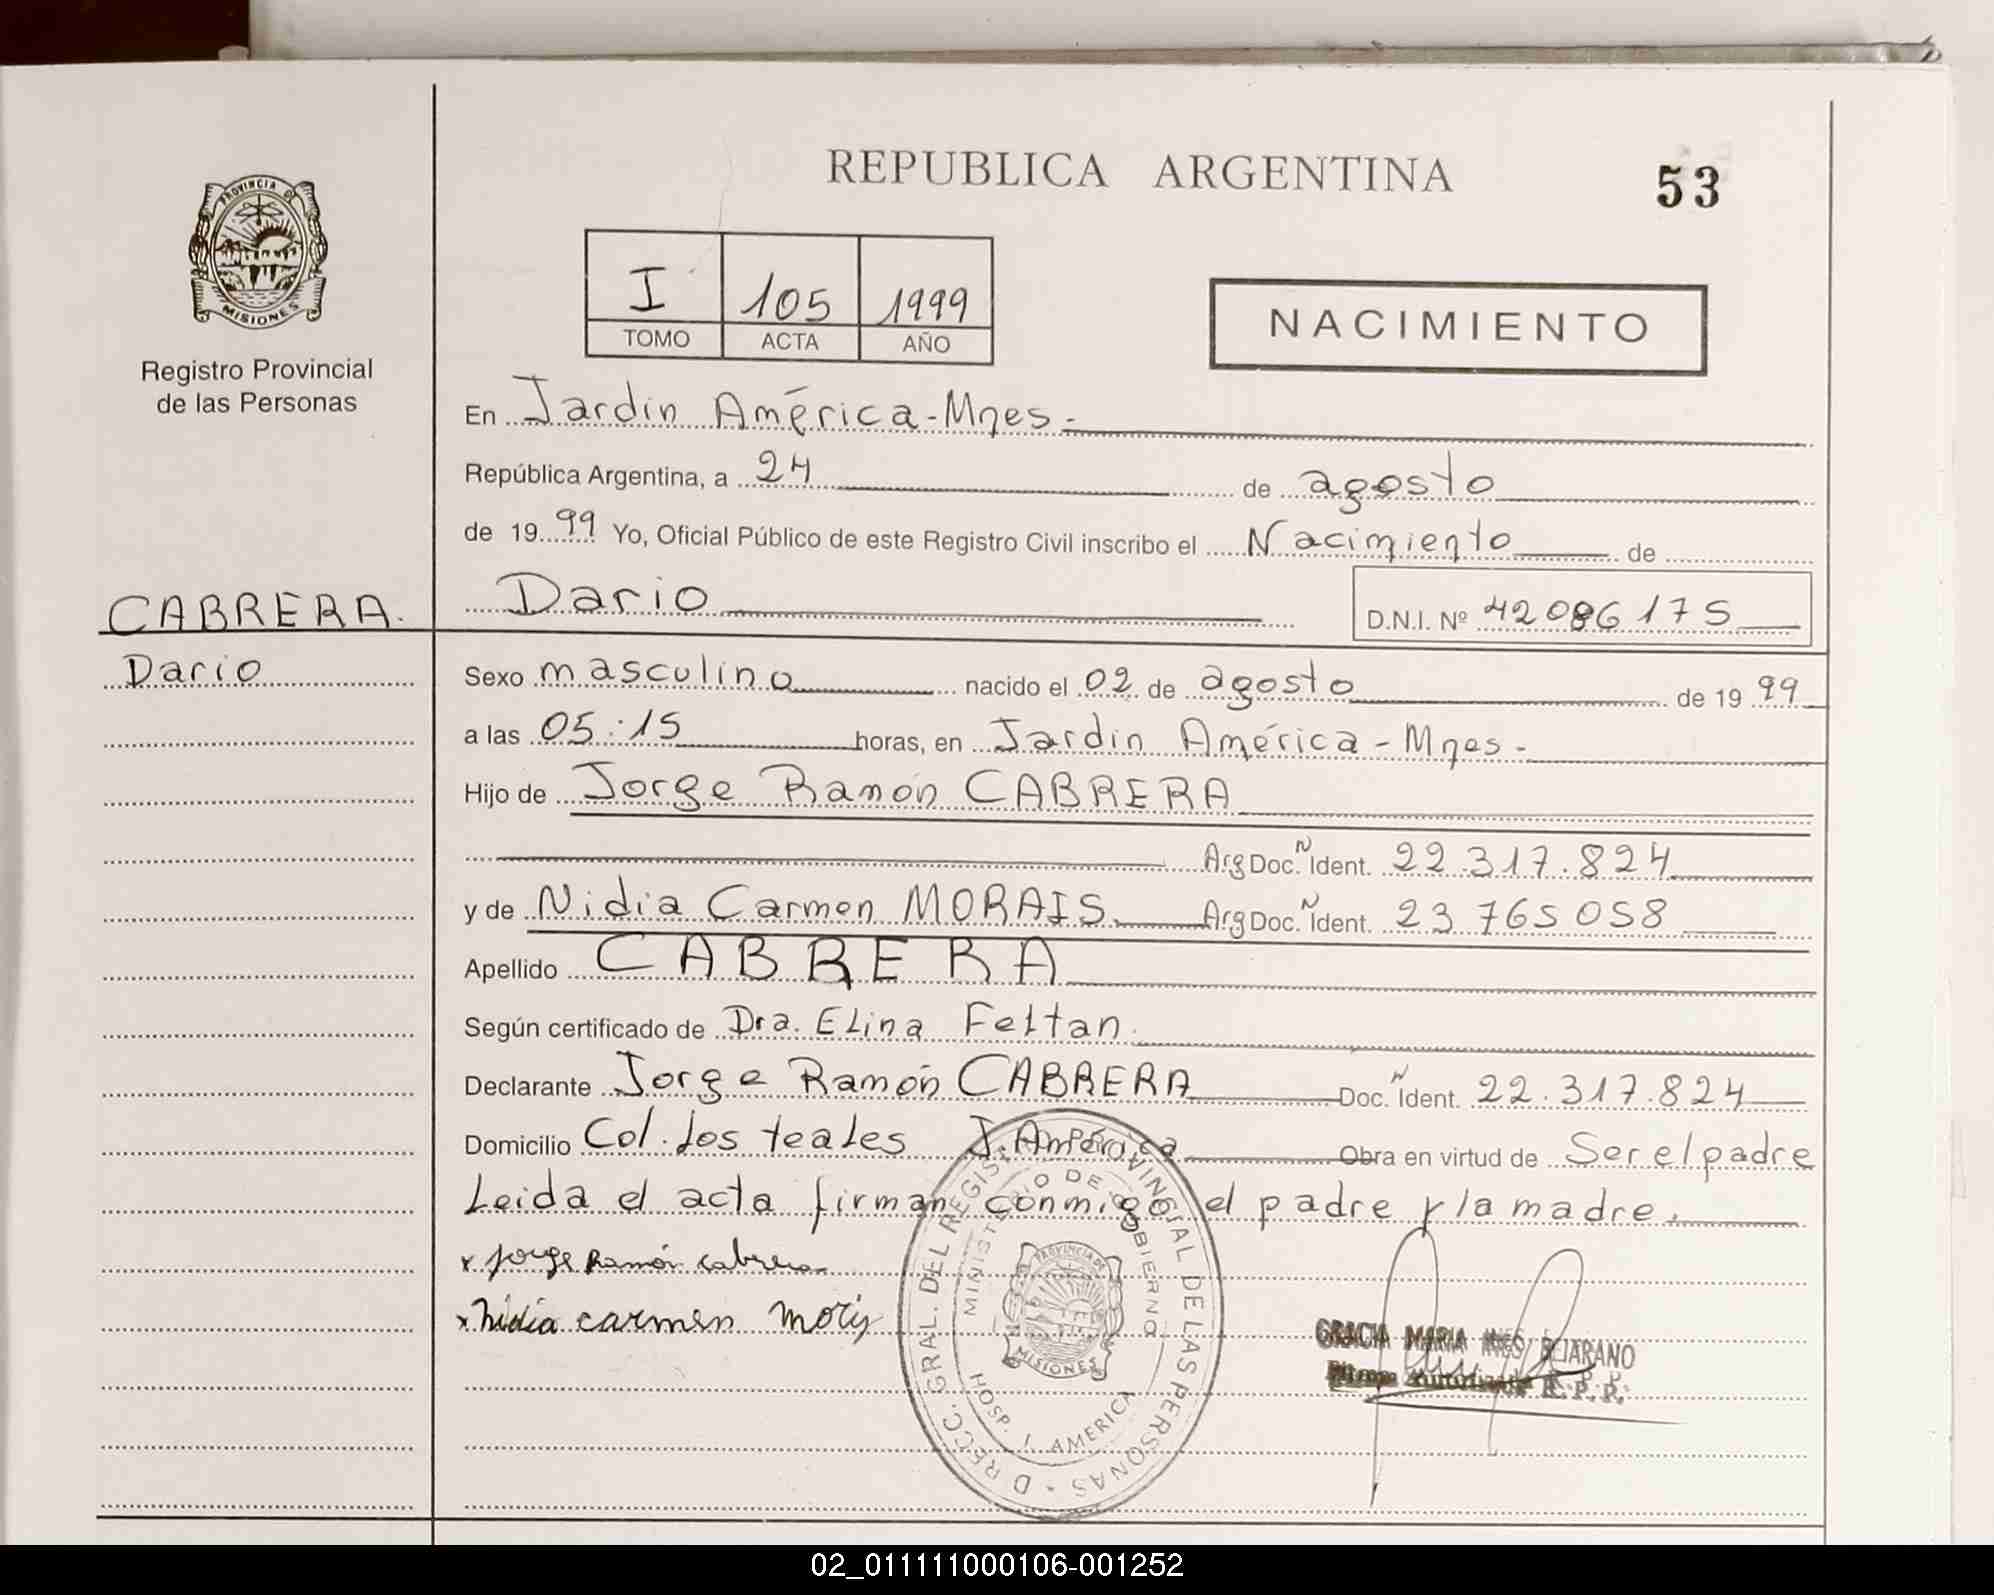 REPUBLICA ARGENTINA
53
PROVINCIA DE
MISIONES
Registro Provincial
de las Personas
I 105 1999
TOMO ACTA AÑO
NACIMIENTO
En Jardin América - Mnes -
República Argentina, a 24 de agosto
de 1999 Yo, Oficial Público de este Registro Civil inscribo el Nacimiento de
CABRERA. Dario D.N.I. Nº 42086175
Dario Sexo masculino nacido el 02 de agosto de 1999
a las 05:15 horas, en Jardin América - Mnes -
Hijo de Jorge Ramón CABRERA
Arg Doc. N Ident. 22.317.824
y de Nidia Carmen MORAIS Arg Doc. N Ident. 23 765 058
Apellido CABRERA
Según certificado de Dra. Elina Feltan.
Declarante Jorge Ramón CABRERA Doc. N Ident. 22.317.824
Domicilio Col. Los teales J. América Obra en virtud de Ser el padre
Leida el acta firman conmigo el padre y la madre.
x Jorge Ramón Cabrera
x Nidia carmen
DRECC. GRAL. DEL REGIST PROVINCIAL DE LAS PERSONAS
MINISTERIO DE GOBIERNO
PROVINCIA DE
MISIONES
HOSP. J. AMERICA
GRACIA MARIA INES BEJARANO
R. P. P.
02_011111000106-001252